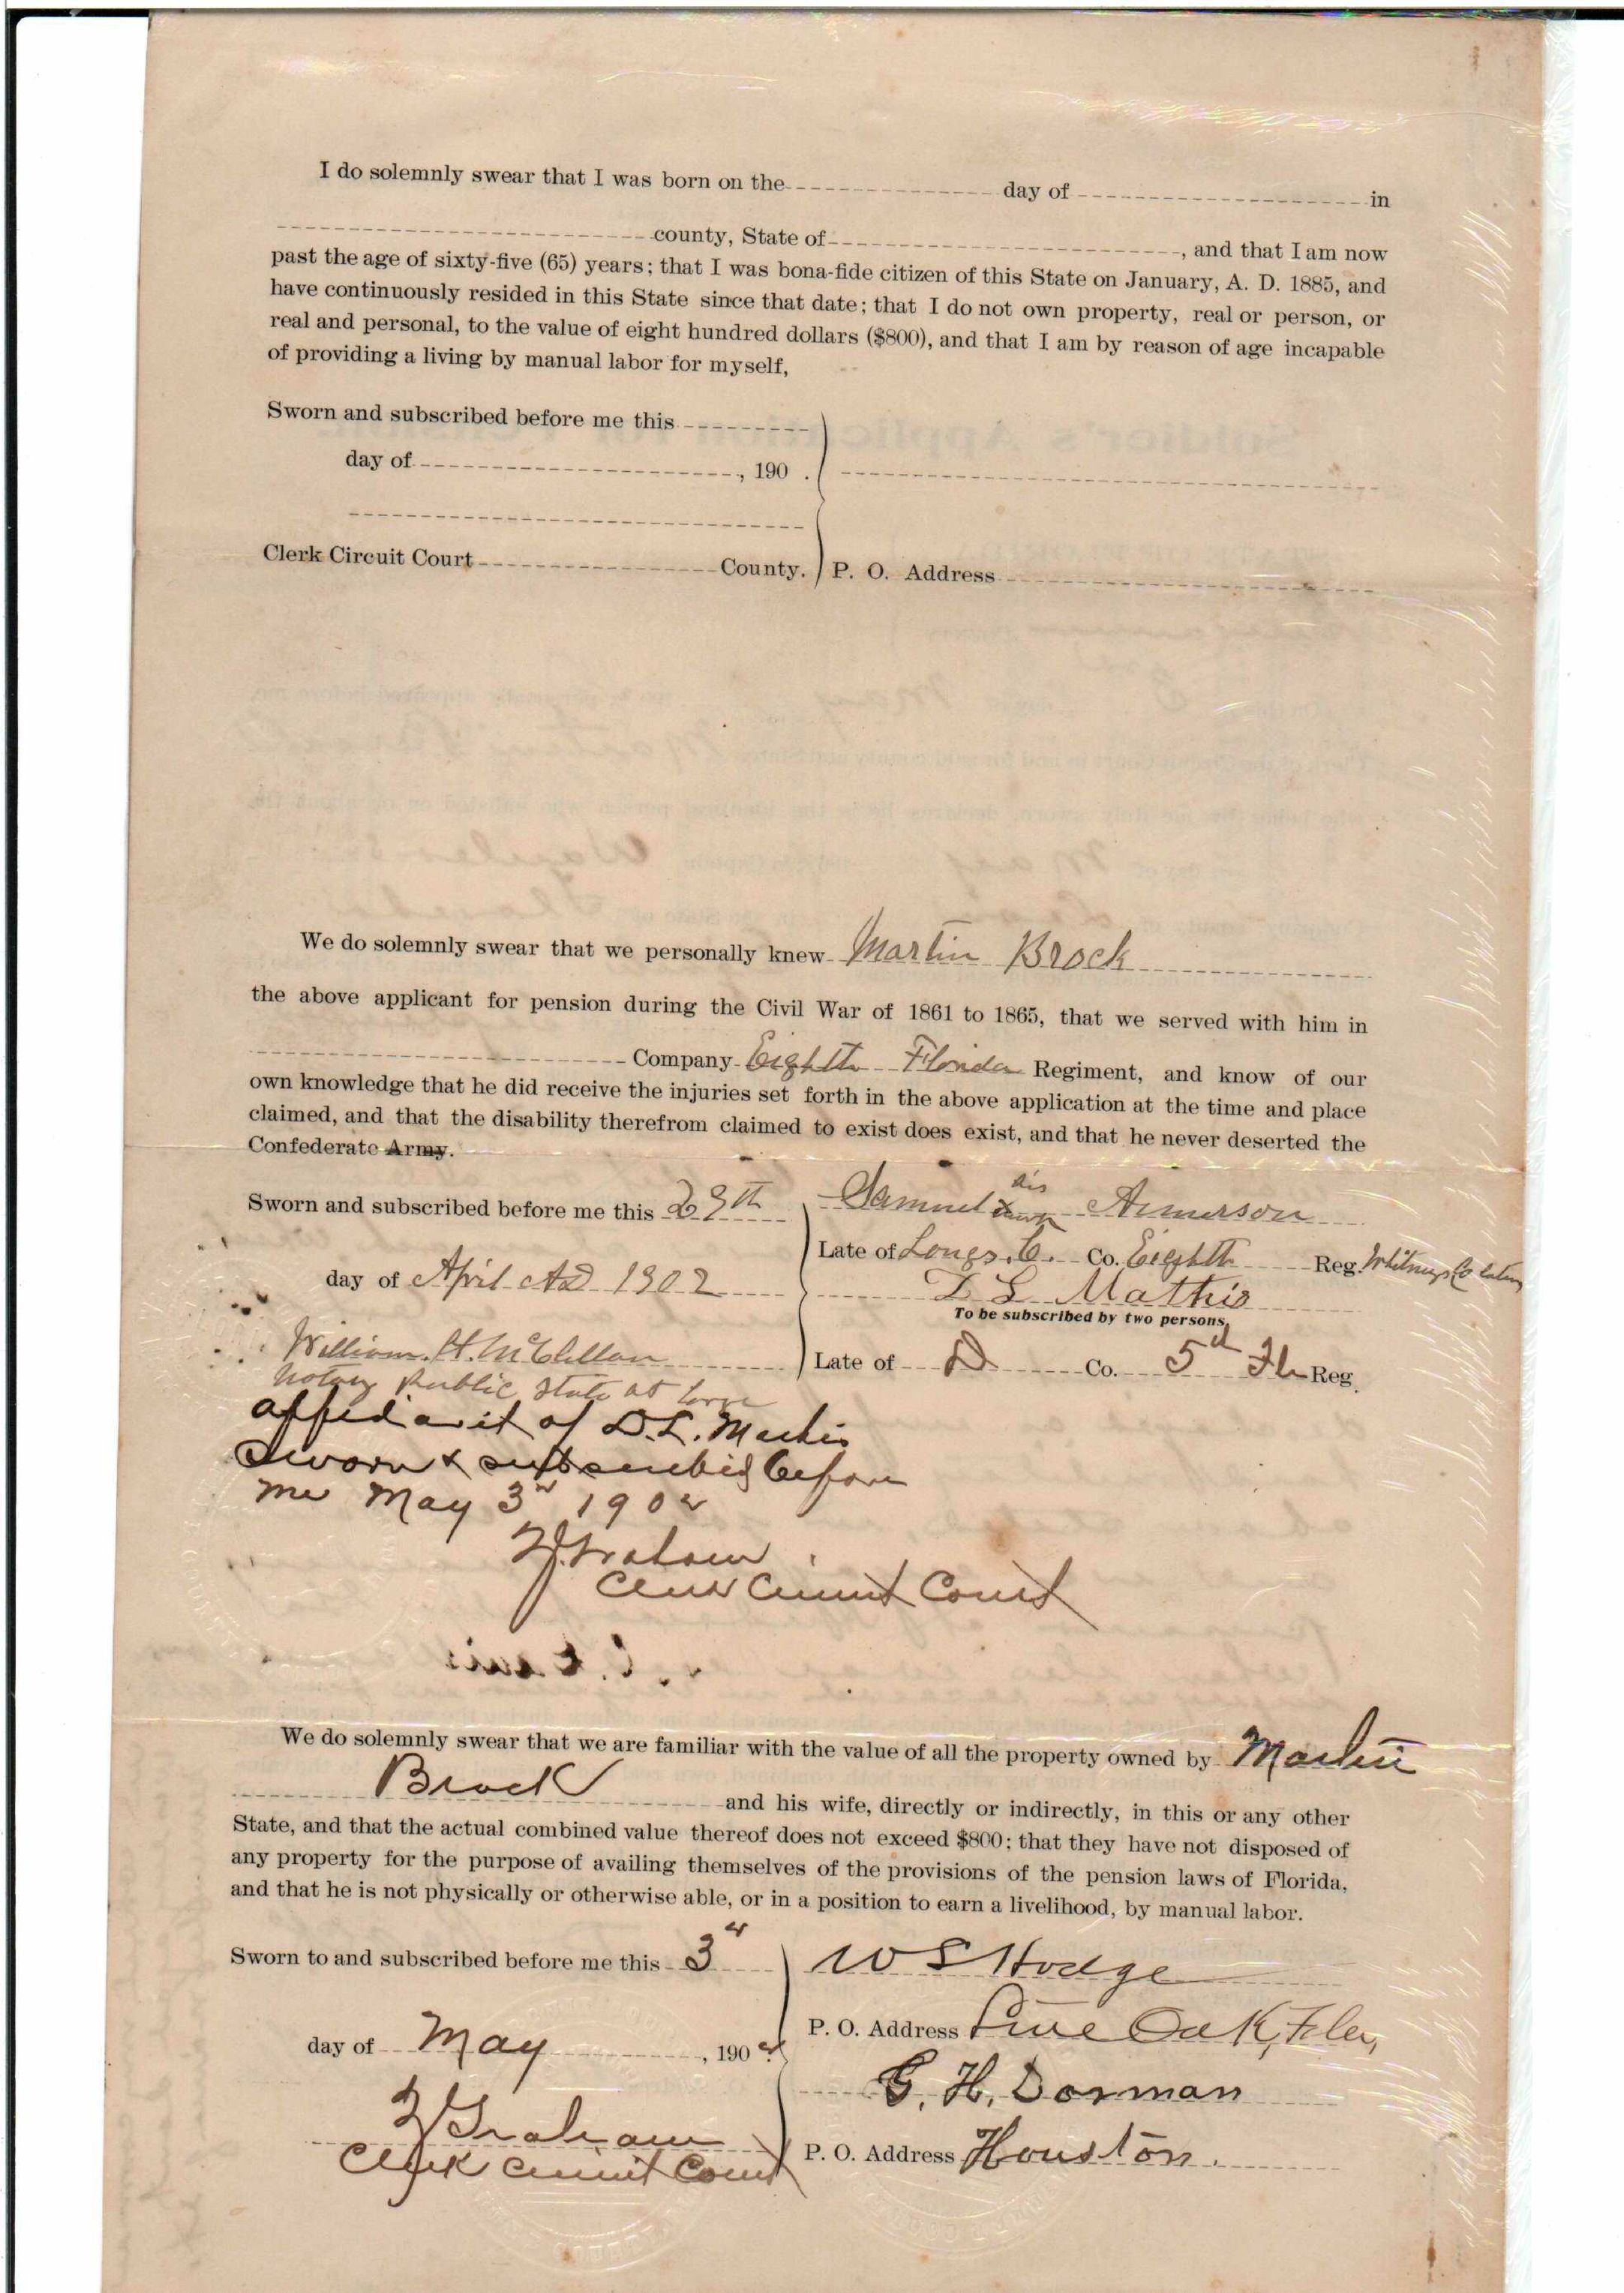 I do solemnly swear that I was born on the day of in
county, State of , and that I am now
past the age of sixty-five (65) years; that I was bona-fide citizen of this State on January, A. D. 1885, and
have continuously resided in this State since that date; that I do not own property, real or person, or
real and personal, to the value of eight hundred dollars ($800), and that I am by reason of age incapable
of providing a living by manual labor for myself,
Sworn and subscribed before me this
day of , 190 .
Clerk Circuit Court County. P. O. Address
We do solemnly swear that we personally knew Martin Brock
the above applicant for pension during the Civil War of 1861 to 1865, that we served with him in
Company Eighth Florida Regiment, and know of our
own knowledge that he did receive the injuries set forth in the above application at the time and place
claimed, and that the disability therefrom claimed to exist does exist, and that he never deserted the
Confederate Army.
Sworn and subscribed before me this 29th Samuel his x mark
Late of Longs. C. Co. Eighth Reg. Whitneys Co
day of April AD 1902
D L Mathis
To be subscribed by two persons.
William. H. McClellan Late of D Co. 5d Fla Reg.
Notary Public State at Large
affidavit of D. L. Mathis
Sworn & subscribed before
me May 3d 1902
Graham
Clerk Circuit Court
We do solemnly swear that we are familiar with the value of all the property owned by Martin
Brock and his wife, directly or indirectly, in this or any other
State, and that the actual combined value thereof does not exceed $800; that they have not disposed of
any property for the purpose of availing themselves of the provisions of the pension laws of Florida,
and that he is not physically or otherwise able, or in a position to earn a livelihood, by manual labor.
Sworn to and subscribed before me this 3d W S Hodge
P. O. Address Live Oak, Fla,
day of May , 1902
G. H. Dorman
Graham
Clerk Circuit Court P. O. Address Houston.